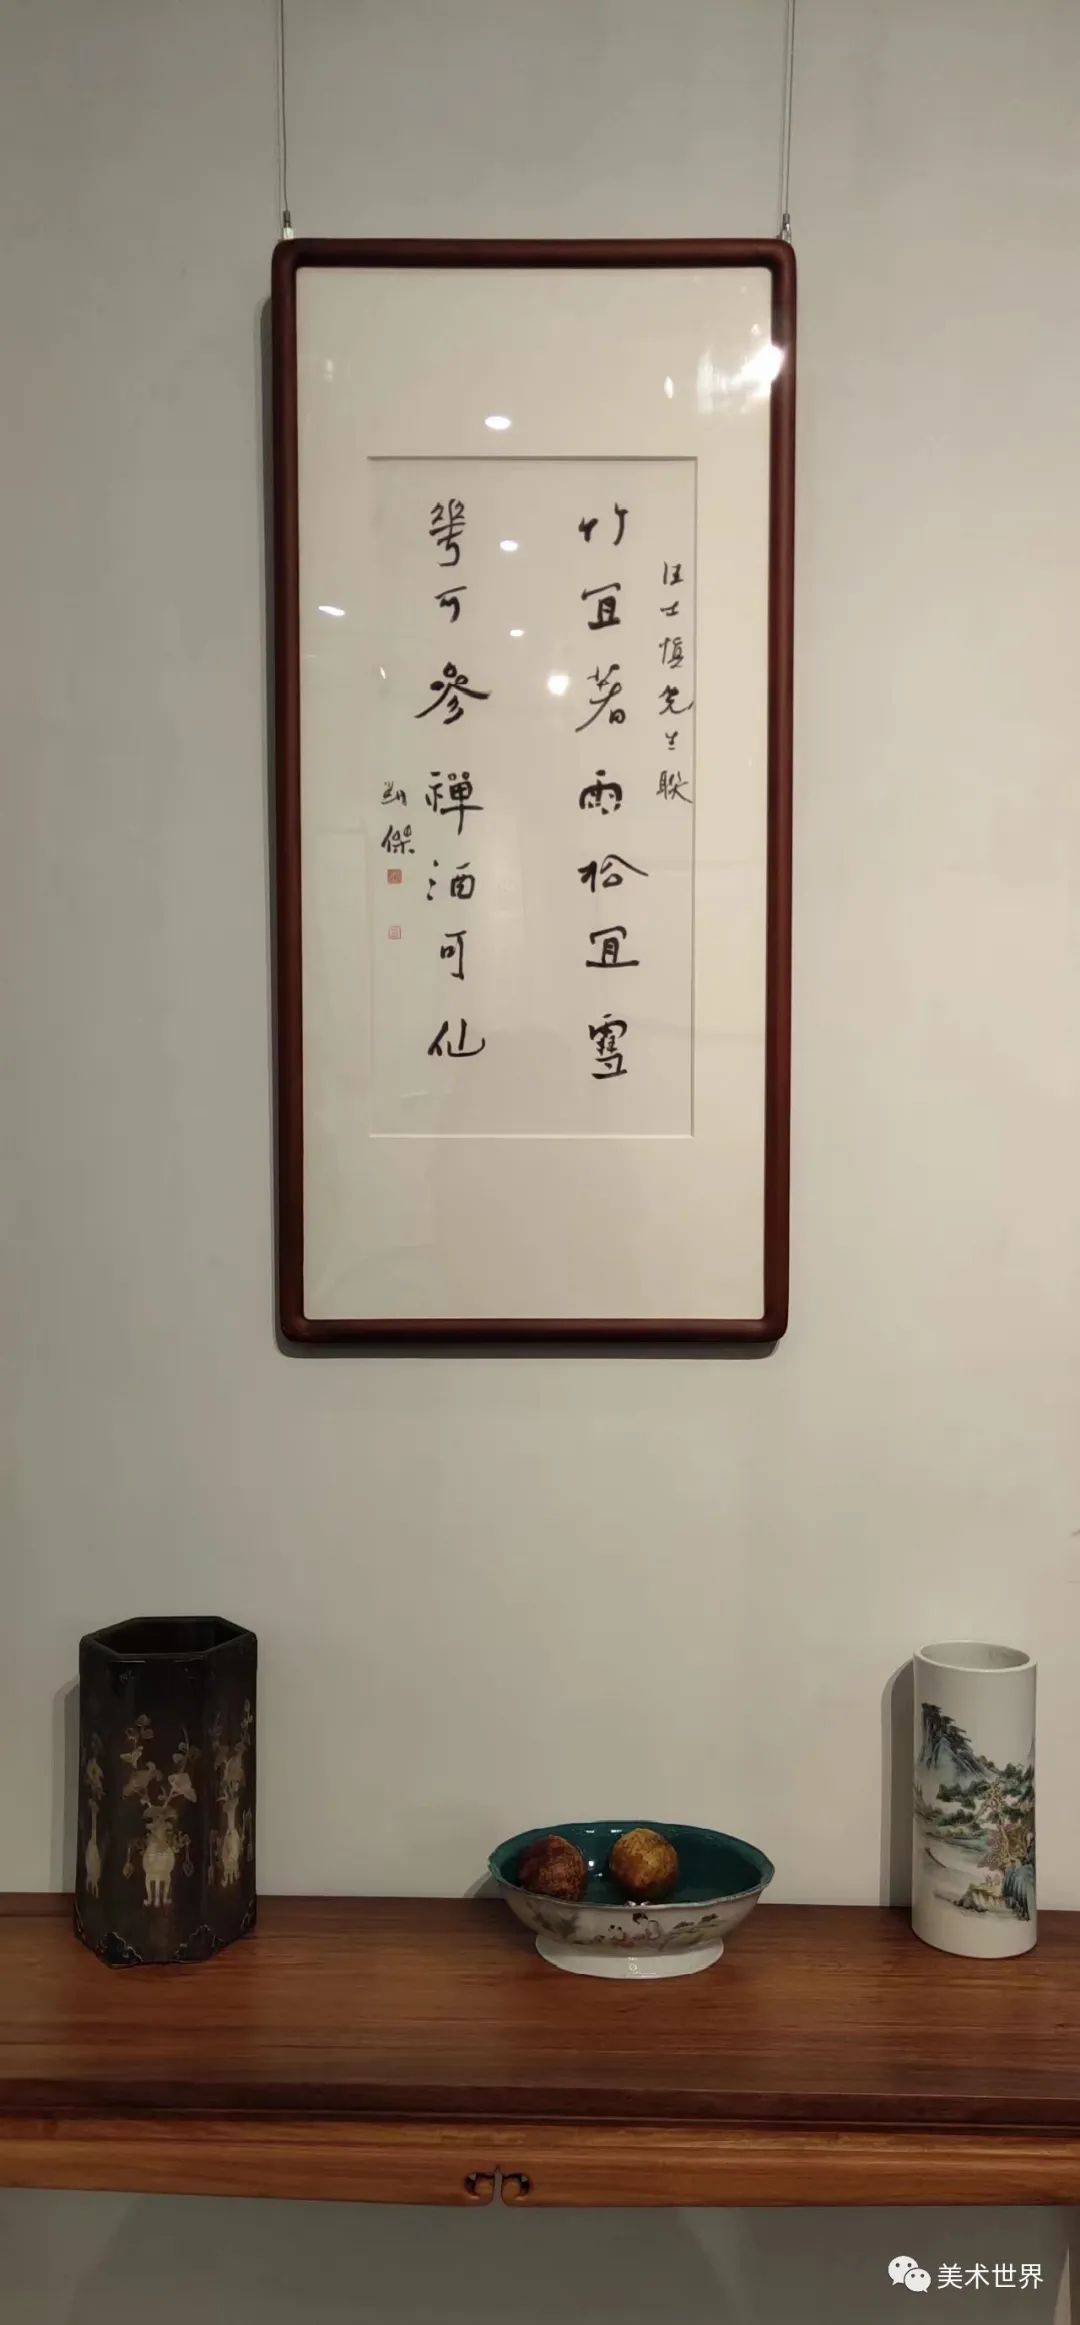 汪士慎先生联
竹宜著雨松宜雪
華可參禪酒可仙
傑
美术世界